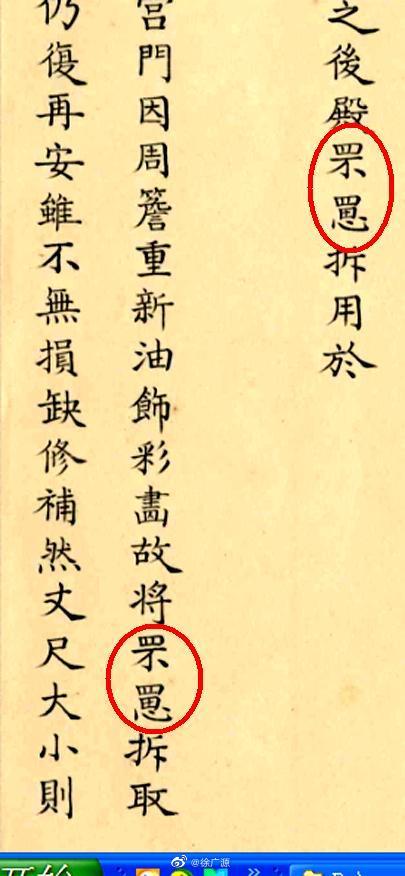 之後殿罘罳拆用於
宮門因周簷重新油飾彩畫故将罘罳拆取
仍復再安雖不無損缺修補然丈尺大小則
@徐广源
开始